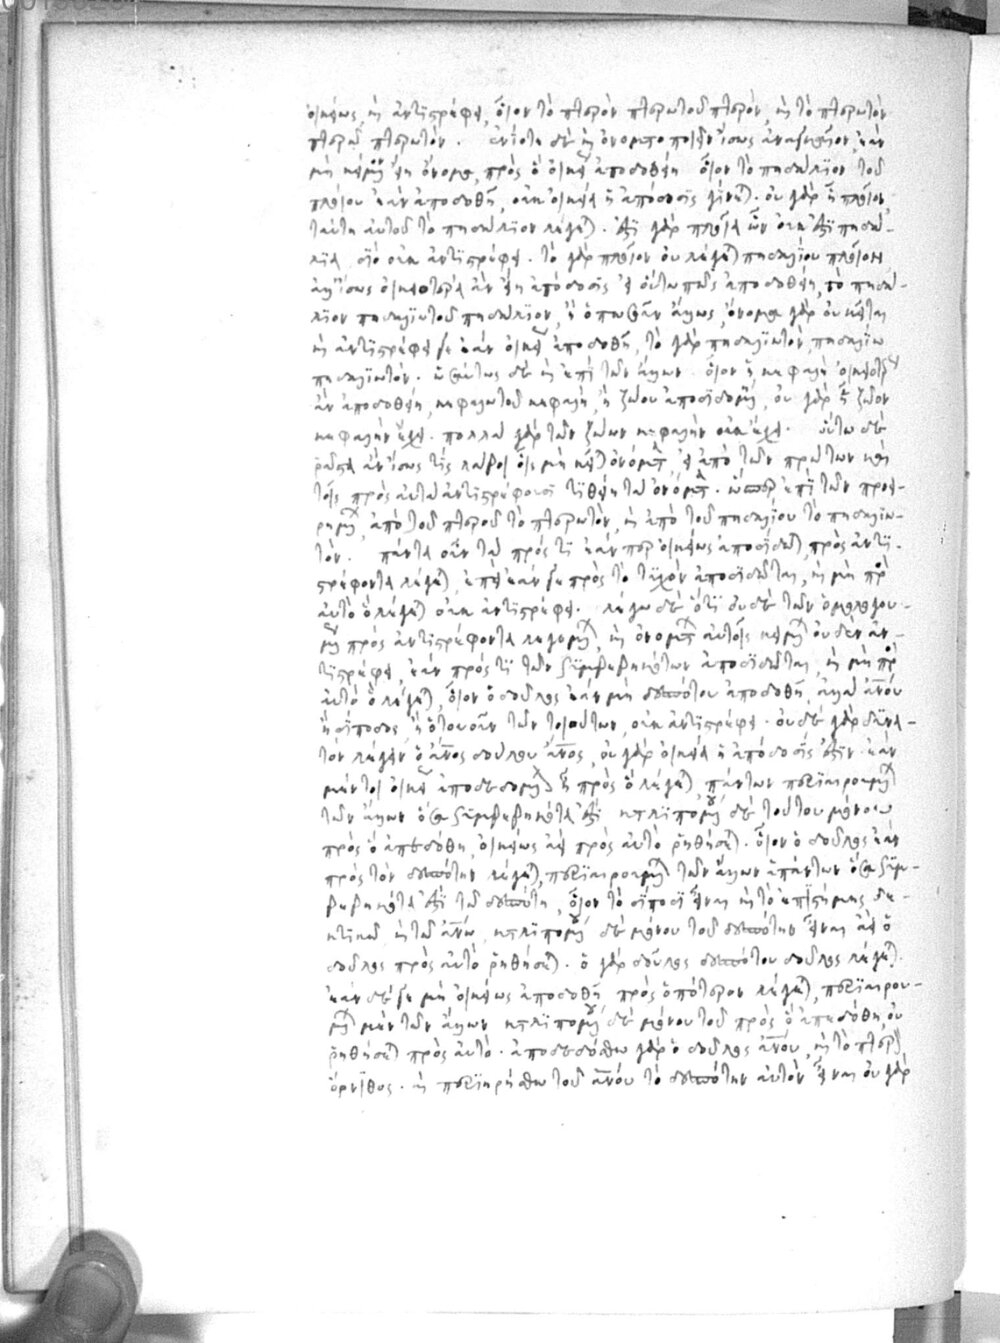 οἰκείως, καὶ ἀντιστρέφει, οἷον τὸ πτερὸν πτερωτοῦ πτερὸν, καὶ τὸ πτερωτὸν
πτερῷ πτερωτόν. ἐνίοτε δὲ καὶ ὀνοματοποιεῖν ἴσως ἀναγκαῖον, ἐὰν
μὴ κείμενον ᾖ ὄνομα, πρὸς ὃ οἰκείως ἀποδοθείη οἷον τὸ πηδάλιον τοῦ
πλοίου ἐὰν ἀποδοθῇ, οὐκ οἰκεία ἡ ἀπόδοσις γίνεται. οὐ γὰρ ᾗ πλοῖον
ταύτῃ αὐτοῦ τὸ πηδάλιον λέγεται. ἔστι γὰρ πλοῖα ὧν οὐκ ἔστι πηδά-
λια, διὸ οὐκ ἀντιστρέφει. τὸ γὰρ πλοῖον οὐ λέγεται πηδαλίου πλοῖον
ἀλλ' ἴσως οἰκειοτέρα ἂν εἴη ἀπόδοσις εἰ οὕτω πως ἀποδοθείη, τὸ πηδά-
λιον πηδαλιωτοῦ πηδάλιον, ἢ ὁπωσοῦν ἄλλως, ὄνομα γὰρ οὐ κεῖται
καὶ ἀντιστρέφει γε ἐὰν οἰκείως ἀποδοθῇ, τὸ γὰρ πηδαλιωτὸν, πηδαλίῳ
πηδαλιωτόν. ὡσαύτως δὲ καὶ ἐπὶ τῶν ἄλλων. οἷον ἡ κεφαλὴ οἰκειοτέρως
ἂν ἀποδοθείη, κεφαλωτοῦ κεφαλὴ, ἢ ζώου ἀποδιδομένη, οὐ γὰρ ᾗ ζῶον
κεφαλὴν ἔχει. πολλὰ γὰρ τῶν ζώων κεφαλὴν οὐκ ἔχει. οὕτω δὲ
ῥᾷστα ἂν ἴσως τις λάβοι οἷς μὴ κεῖται ὀνόματα, εἰ ἀπὸ τῶν πρώτων καὶ
τοῖς πρὸς αὐτὰ ἀντιστρέφουσι τιθείη τὰ ὀνόματα. ὥσπερ ἐπὶ τῶν προει-
ρημένων, ἀπὸ τοῦ πτεροῦ τὸ πτερωτὸν, καὶ ἀπὸ τοῦ πηδαλίου τὸ πηδαλιω-
τόν. πάντα οὖν τὰ πρός τι ἐάνπερ οἰκείως ἀποδιδῶται, πρὸς ἀντι-
στρέφοντα λέγεται, ἐπεὶ ἐάν γε πρὸς τὸ τυχὸν ἀποδιδῶται, καὶ μὴ πρὸς
αὐτὸ ὃ λέγεται οὐκ ἀντιστρέφει. λέγω δὲ ὅτι οὐδὲ τῶν ὁμολογου-
μένων πρὸς ἀντιστρέφοντα λεγομένων, καὶ ὀνομάτων αὐτοῖς κειμένων οὐδὲν ἀν-
τιστρέφει, ἐὰν πρός τι τῶν συμβεβηκότων ἀποδιδῶται, καὶ μὴ πρὸς
αὐτὸ ὃ λέγεται, οἷον ὁ δοῦλος ἐὰν μὴ δεσπότου ἀποδοθῇ, ἀλλὰ ἀνθρώπου
ἢ δίποδος ἢ ὁτουοῦν τῶν τοιούτων, οὐκ ἀντιστρέφει. οὐδὲ γὰρ δύνα-
τον λέγειν ὁ ἄνθρωπος δούλου ἄνθρωπος, οὐ γὰρ οἰκεία ἡ ἀπόδοσίς ἐστιν. ἐὰν
μέντοι οἰκείως ἀποδεδομένον ᾖ πρὸς ὃ λέγεται, πάντων περιαιρουμένων
τῶν ἄλλων ὅσα συμβεβηκότα ἐστὶ καταλειπομένου δὲ τούτου μόνου
πρὸς ὃ ἀπεδόθη, οἰκείως ἀεὶ πρὸς αὐτὸ ῥηθήσεται. οἷον ὁ δοῦλος ἐὰν
πρὸς τὸν δεσπότην λέγεται, περιαιρουμένων τῶν ἄλλων ἁπάντων ὅσα συμ-
βεβηκότα ἐστὶ τῷ δεσπότῃ, οἷον τὸ δίποδι εἶναι καὶ τὸ ἐπιστήμης δε-
κτικῷ καὶ τῷ ἀνθρώπῳ, καταλειπομένου δὲ μόνου τοῦ δεσπότην εἶναι ἀεὶ ὁ
δοῦλος πρὸς αὐτὸ ῥηθήσεται. ὁ γὰρ δοῦλος δεσπότου δοῦλος λέγεται.
ἐὰν δέ γε μὴ οἰκείως ἀποδοθῇ πρὸς ὁπότερον λέγεται, περιαιρου-
μένων μὲν τῶν ἄλλων καταλειπομένου δὲ μόνου τοῦ πρὸς ὃ ἀπεδόθη οὐ
ῥηθήσεται πρὸς αὐτό. ἀποδεδόσθω γὰρ ὁ δοῦλος ἀνθρώπου, καὶ τὸ πτερὸν
ὄρνιθος. καὶ περιῃρήσθω τοῦ ἀνθρώπου τὸ δεσπότην αὐτὸν εἶναι οὐ γὰρ